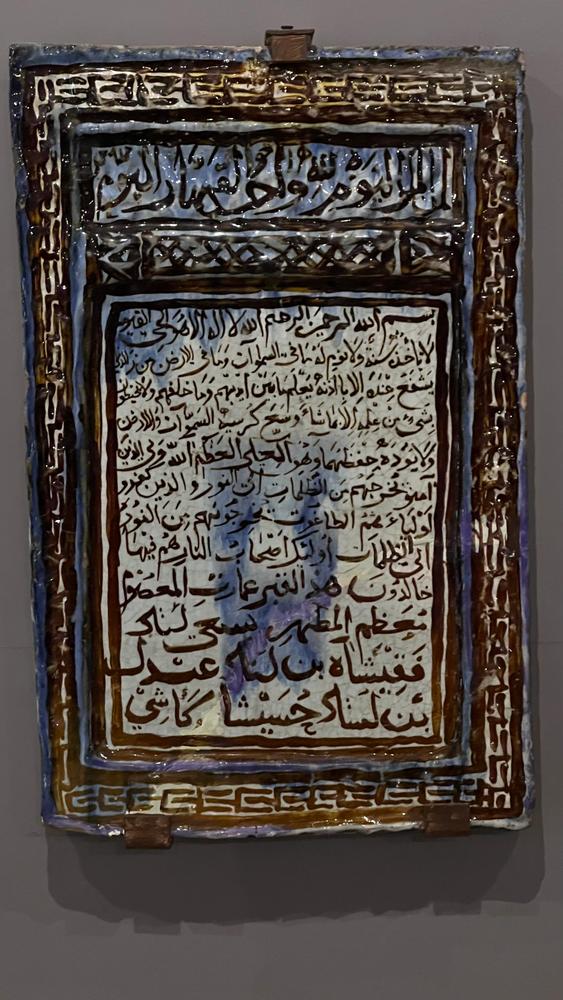 لمن الملك اليوم لله واحد القهار اليوم
بسم الله الرحمن الرحيم الله لا اله الا هو الحي القيوم
لا تأخذه سنة ولا نوم له ما في السموات وما في الارض من ذا الذي
يشفع عنده الا باذنه يعلم ما بين ايديهم وما خلفهم ولا يحيطون
بشئ من علمه الا بما شاء وسع كرسيه السموات والارض
ولا يوده حفظهما وهو العلي العظيم الله ولي الذين
آمنوا يخرجهم من الظلمات الى النور والذين كفروا
اولياءهم الطاغوت يخرجونهم من النور
الى الظلمات أولئك اصحاب النار هم فيها
خالدون هذا القبر
معظم المطهر
بن
بن كاشي